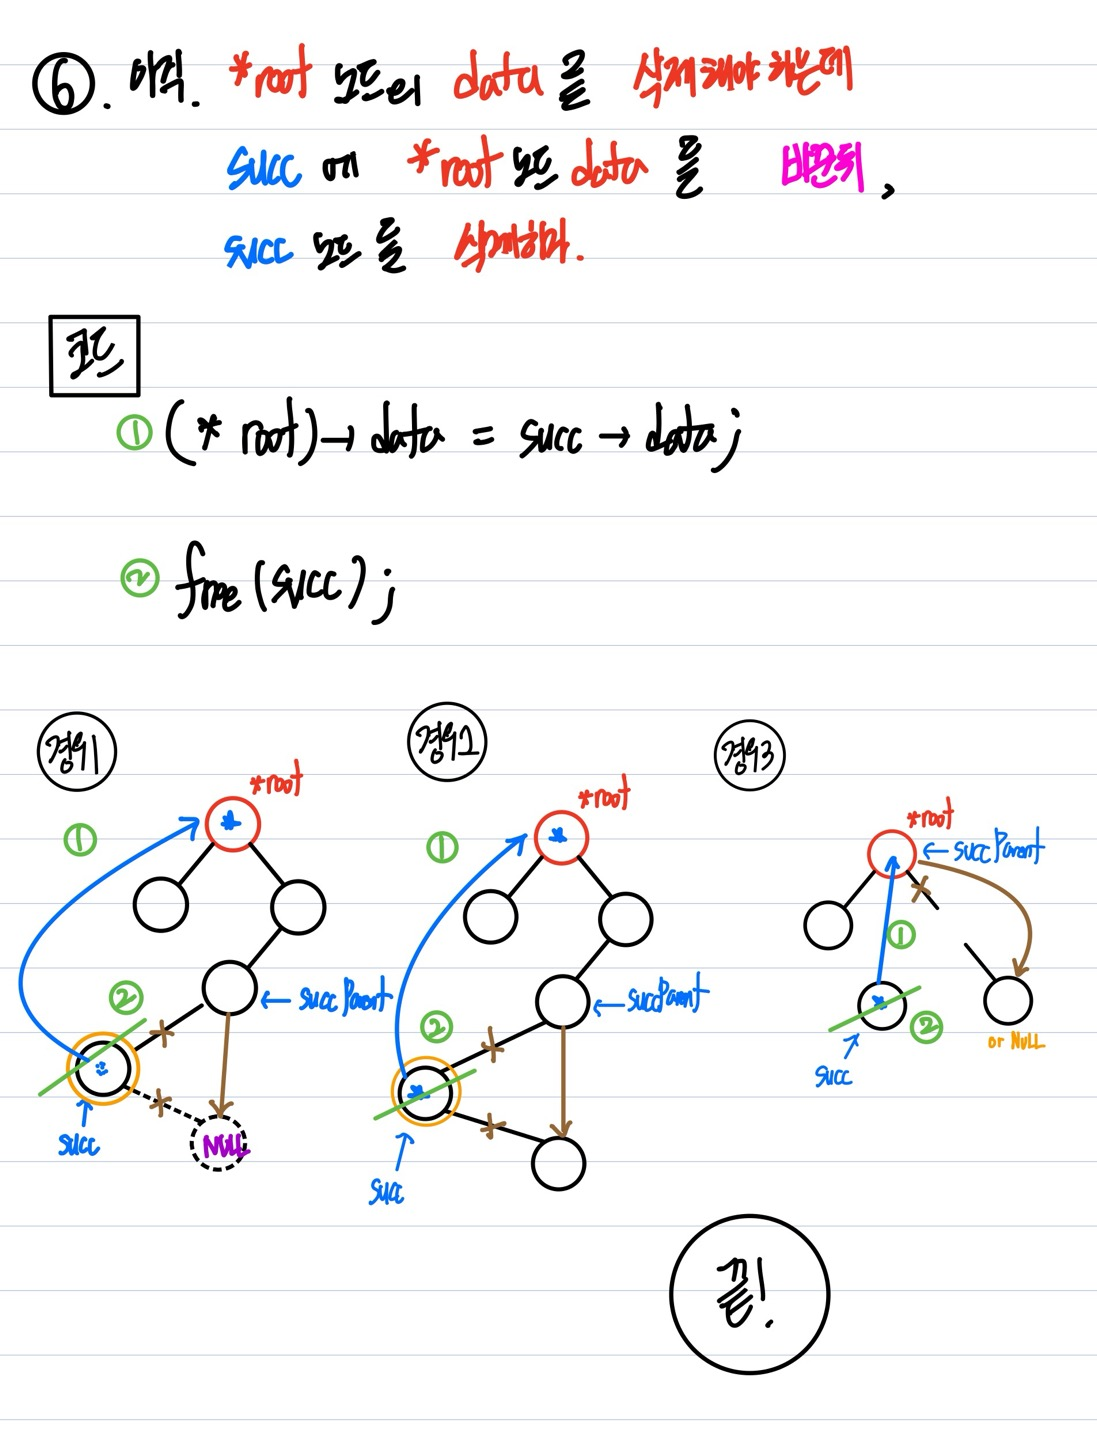 ⑥. 아직. *root 노드의 data를 삭제해야 하는데
succ에 *root 노드 data를 바꾼뒤,
succ 노드를 삭제하라.
코드
① (* root)→data = succ→data;
② free(succ);
경우1
경우2
경우3
*root
*root
*root
← succParent
①
①
①
② ← succParent
② ← succParent
②
succ
NULL
succ
succ
or NULL
끝!